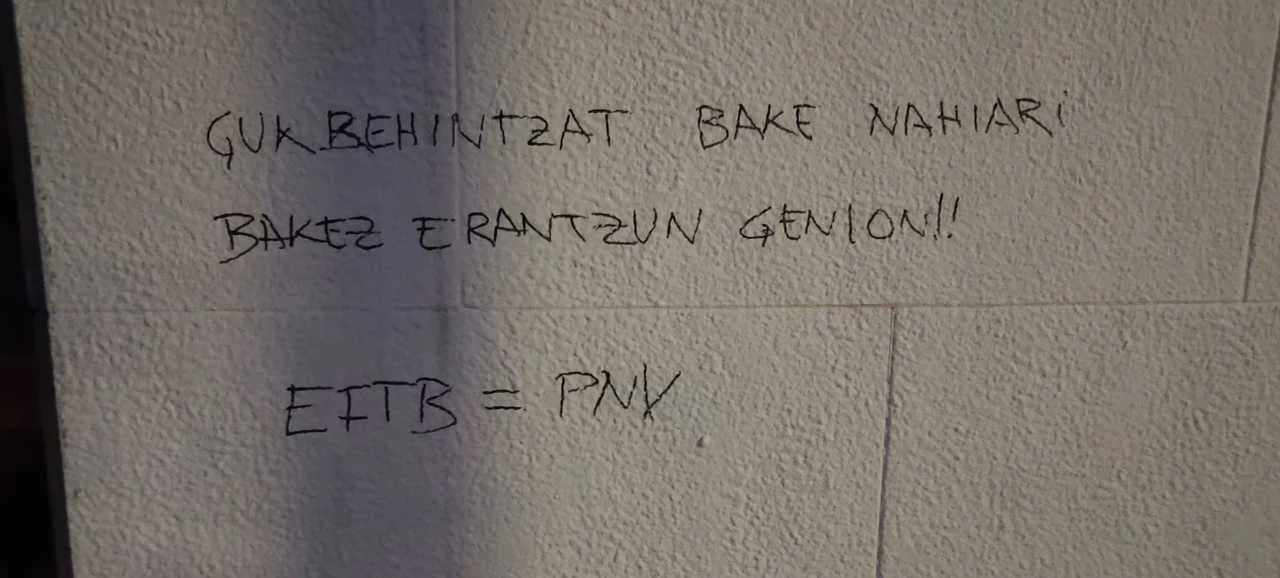 GUK BEHINTZAT BAKE NAHIARi
BAKEZ ERANTZUN GENION!!
EITB = PNV